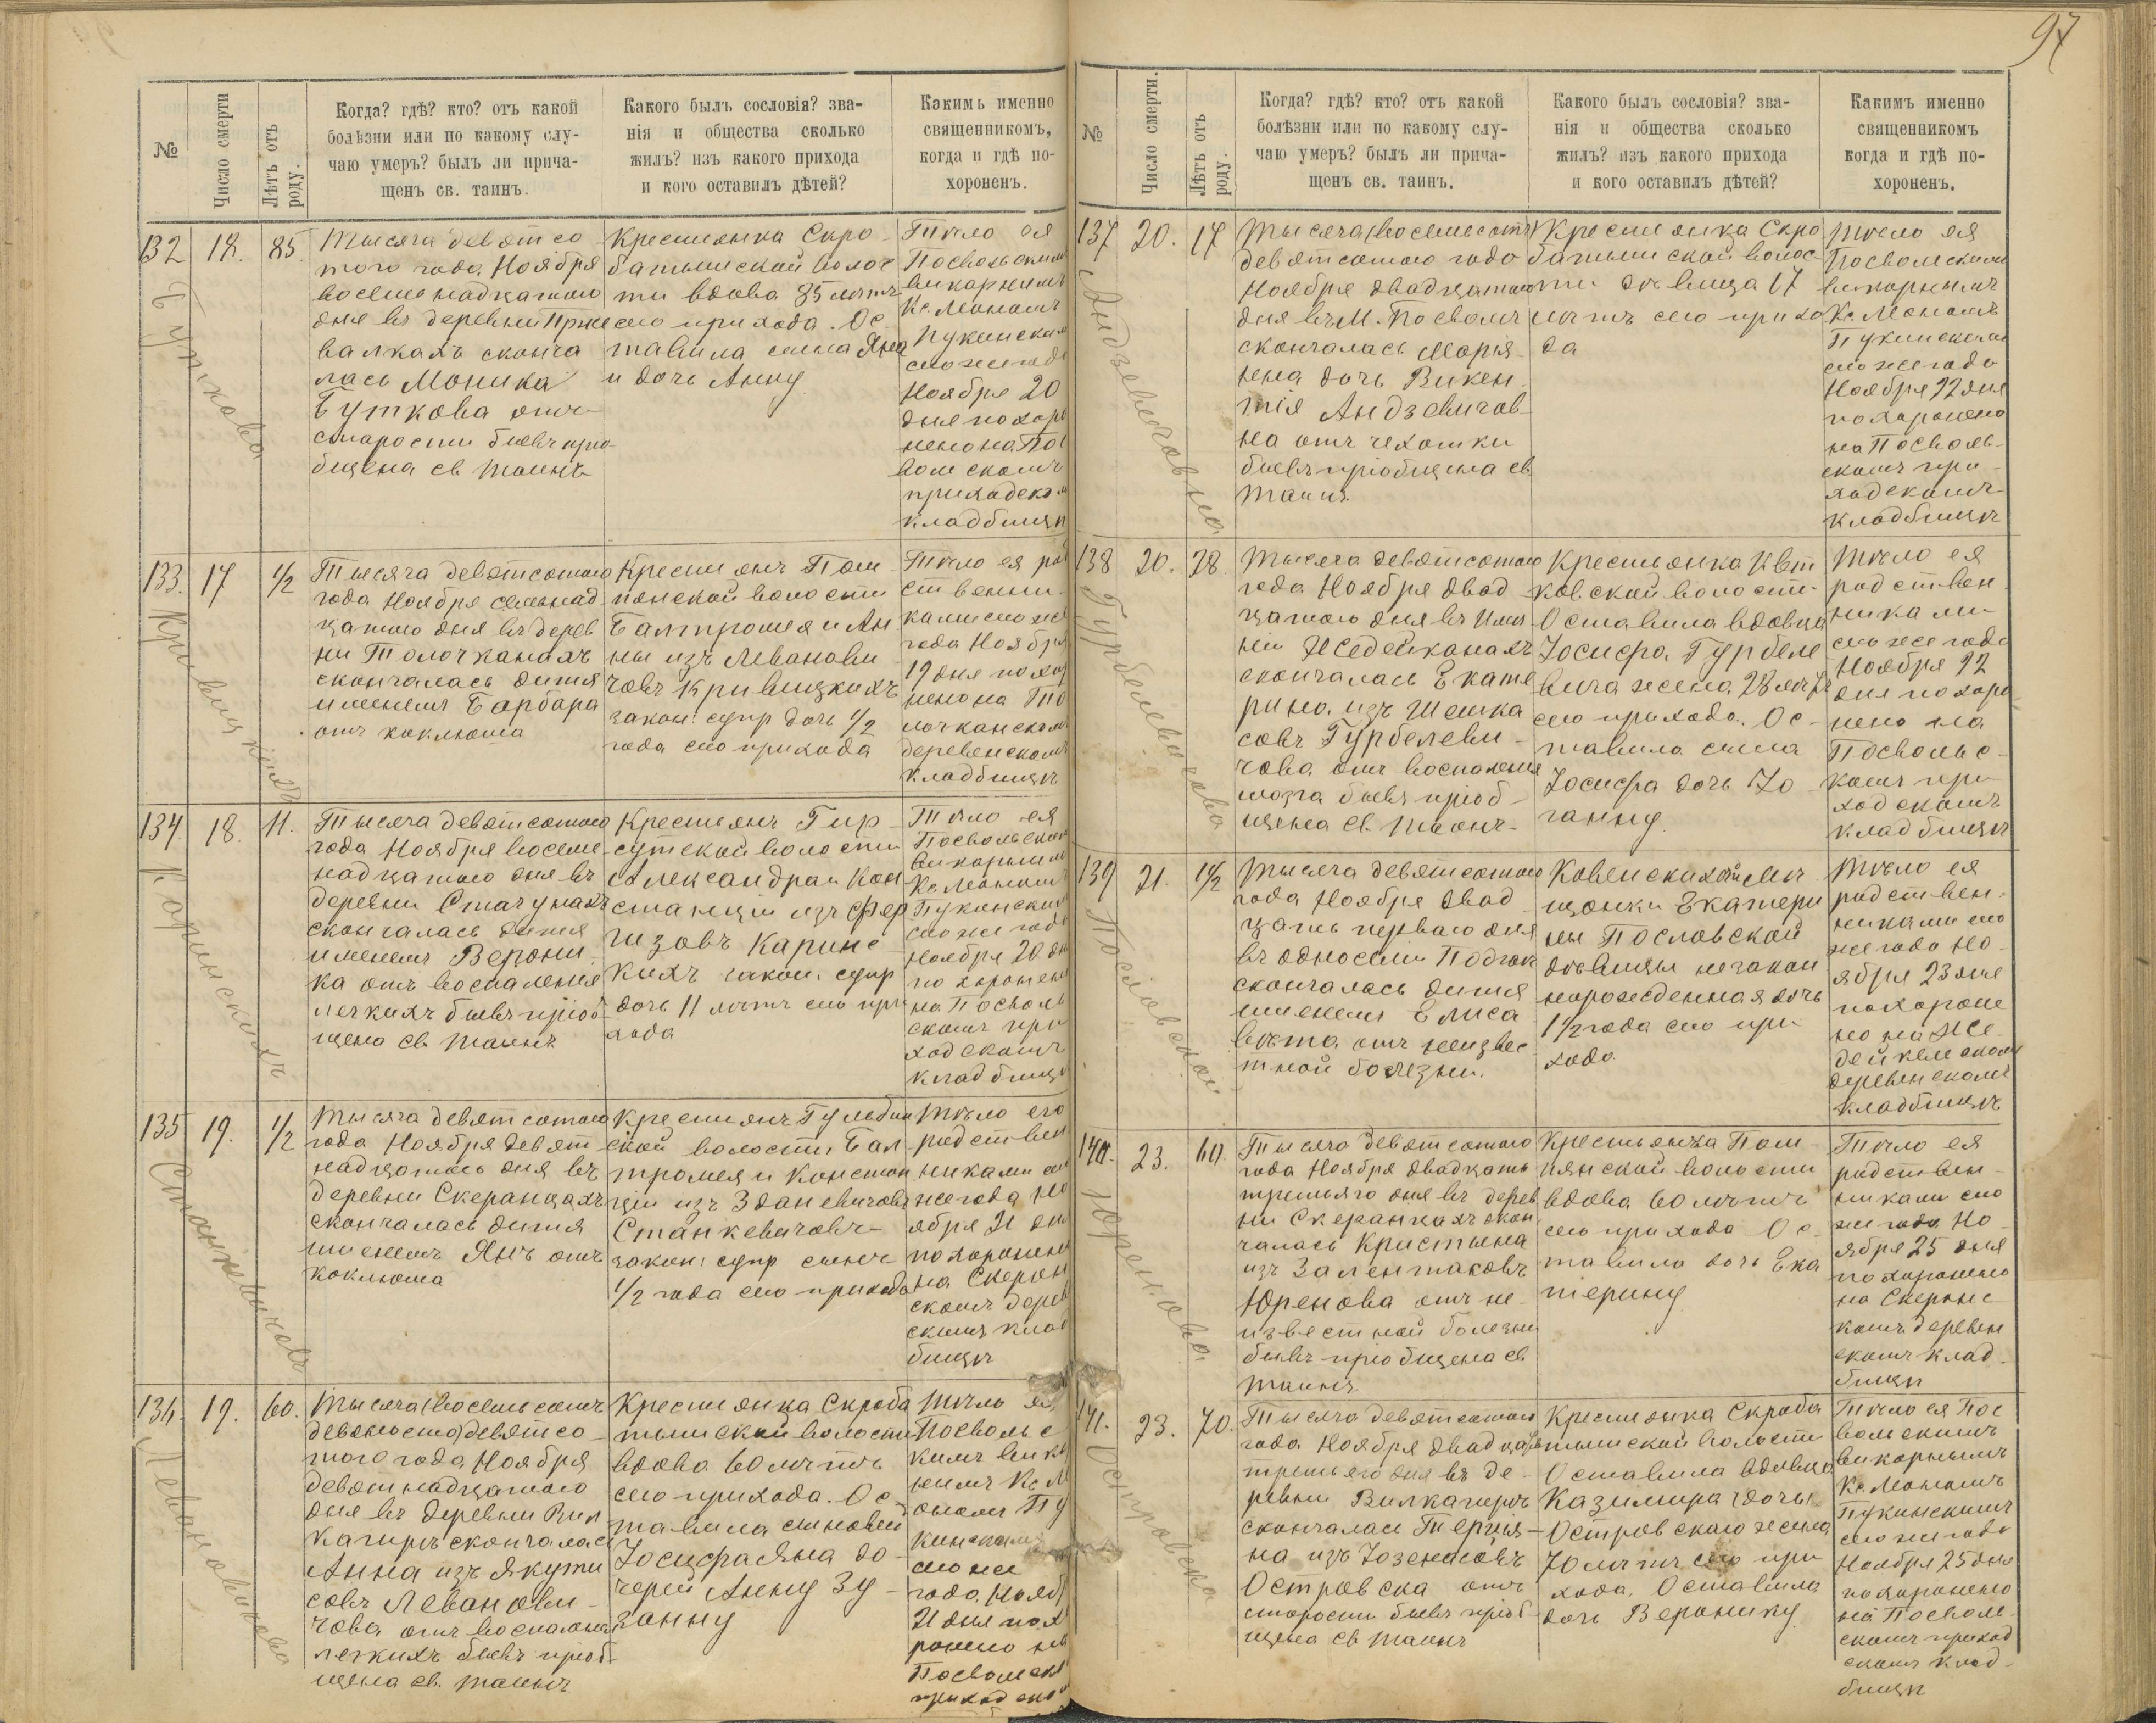 №
Число смерти
Лѣтъ отъ роду.
Когда? гдѣ? кто? отъ какой
болѣзни или по какому слу-
чаю умеръ? былъ ли прича-
щенъ св. таинъ.
Какого былъ сословія? зва-
нія и общества сколько
жилъ? изъ какого прихода
и кого оставилъ дѣтей?
Какимъ именно
священникомъ,
когда и гдѣ по-
хороненъ.
132
Буткова
18.
85.
Тысяча девятсо
того года Ноября
восемнадцатого
дня въ деревни
валкахъ сконча
лась Моника
Буткова отъ
старости бывъ прио
бщена св Таинъ
Крестянка Скро-
батышской волос
ти вдова 85 лѣтъ
сего прихода. Ос
тавила сына Яна
и дочь Анну
Тѣло ея
Посвольским
викарнимъ
Кс. Маномъ
Пукинским
сего же года
Ноября 20
дня похоро
нено на По
вольскомъ
приходском
кладбищѣ
133.
Кривицкихъ
17
1/2
Тысяча девятсотого
года Ноября семьнад
цатого дня въ дерев
ни Толочканахъ
скончалась дитя
именемъ Барбара
отъ коклюша
Крестянъ Пом-
пянской волости
Балтромея и Ан
ны изъ Леванови
човъ Кривицкихъ
закон: супр дочь 1/2
года сего прихода
Тѣло ея род
ственни-
ками сего же
года Ноября
19 дня похо
нено на То
лочканском
деревенском
кладбищѣ
134.
Каринскихъ
18.
11.
Тысяча девятсотого
года Ноября восем-
надцатого дня въ
деревни Стачунахъ
скончалась дитя
именемъ Верони
ка отъ воспаления
легкихъ бывъ приоб
щена св Таинъ
Крестьянъ Гир-
сутской волости
Александра и Кон
станции изъ
гизовъ Каринс-
кихъ закон: супр
дочь 11 лѣтъ сего при
хода
Тѣло ея
Посвольским
викарным
Кс. Маномъ
Пукинским
сего же года
Ноября 20 дн
похоронено
на Посволь
скомъ при
ходскомъ
кладбищѣ
135
Станкевичовъ
19.
1/2
Тысяча девятсотого
года Ноября девят-
надцатого дня въ
деревни Скеранцахъ
скончалась дитя
именемъ Янъ отъ
коклюша
Крестянъ Гульбин
ской волости Бал
тромея и Констан
ции изъ Зданевичовъ
Станкевичовъ
закон: супр сынъ
1/2 года сего прихода
Тѣло его
родствен
никами сего
же года Но
ября 21 дня
похоронено
на Скеран
скомъ дерев
скомъ клад
бищѣ
136.
Левановичова
19.
60.
Тысяча (восемьсотъ
девяносто) девятсо-
того года Ноября
девятнадцатого
дня въ деревни Вил
кагирѣ скончалась
Анна изъ Якути
совъ Леванови-
чова отъ воспаления
легкихъ бывъ приоб-
щена св. Таинъ
Крестянка Скроба
тышской волости
вдова 60 лѣтъ
сего прихода. Ос-
тавила сыновей
Іосифа Яна до-
черей Анну Зу-
занну
Тѣло ея
Посвольс
кимъ вика
нимъ Кс. М
аномъ Пу
кинскимъ
сего же
года Нояб
21 дня похо
ронено на
Посвольско
приходско
97
№
Число смерти.
Лѣтъ отъ роду.
Когда? гдѣ? кто? отъ какой
болѣзни или по какому слу-
чаю умеръ? былъ ли прича-
щенъ св. таинъ.
Какого былъ сословія? зва-
нія и общества сколько
жилъ? изъ какого прихода
и кого оставилъ дѣтей?
Какимъ именно
священникомъ
когда и гдѣ по-
хороненъ.
137
Андзевичовна
20.
17
Тысяча (восемьсотъ)
девятсотого года
Ноября двадцатого
дня въ М. Посволѣ
скончалась Марья-
нна дочь Викен
тія Андзевичов-
на отъ чехотки
бывъ пріобщена св.
Таинъ
Крестянка Скро
батышской волос
ти дѣвица 17
лѣтъ сего прихо
да
Тѣло ея
Посвольскимъ
викарнымъ
Кс. Маномъ
Пукинскимъ
сего же года
Ноября 22 дня
похоронено
на Посволь-
скомъ при-
ходскомъ
кладбищѣ
138
Гурбелевичова
20.
28
Тысяча девятсотого
года Ноября двад
цатого дня въ Имѣ
ніи Жедейканахъ
скончалась Екате
рина изъ Шешка
совъ Гурбелеви-
чова отъ воспаления
мозга бывъ приоб-
щена св. Таинъ
Крестьянка Квет
ковской волости
Оставила вдовца
Іосифа Гурбеле
вича жена 28 лѣтъ
сего прихода. Ос-
тавила сына
Іосифа дочь Іо
ганну
Тѣло ея
родствен
никами
сего же года
Ноября 22
дня похоро
нено на
Посвольс
комъ при
ходскомъ
кладбищѣ
139
Пословской
21.
1 1/2
Тысяча девятсотого
года Ноября двад
цать перваго дня
въ односели
скончалась дитя
именемъ Елиса
вѣта отъ неизвес
тной болезни.
Ковенскихъ Мѣ
щанки Екатери
ны Пословской
дѣвицы незакон
норожденная дочь
1 1/2 года сего при
хода
Тѣло ея
родствен
никами сего
же года Но
ября 23 дня
похороне
но на Же
дейкемском
деревенскомъ
кладбищѣ
140.
Юренова
23.
60.
Тысяча девятсотого
года Ноября двадцать
третьяго дня въ дерев
ни Скеранцахъ скон
чалась Кристына
изъ Залентасовъ
Юренова отъ не-
известной болезни
бывъ приобщена св
Таинъ
Крестьянка Пом
пянской волости
вдова 60 лѣтъ
сего прихода Ос-
тавила дочь Ека
терину
Тѣло ея
родствен-
никами сего
же года Но-
ября 25 дня
похоронено
на Скеранс
комъ деревен
скомъ клад
бищѣ
141.
Островска
23.
70.
Тысяча девятсотого
года Ноября двадцать
третьего дня въ де-
ревни Вилкагирѣ
скончалась Терція-
на изъ Іозенасовъ
Островска отъ
старости бывъ приоб
щена св Таинъ
Крестянка Скроба
тышской волости
Оставила вдовца
Казимира
Островскаго жена
70 лѣтъ сего при
хода. Оставила
дочь Веронику
Тѣло ея Пос
вольскимъ
викарнымъ
Кс. Маномъ
Пукинскимъ
сего же года
Ноября 25 дня
похоронено
на Посволь
скомъ приход
скомъ клад-
бищѣ